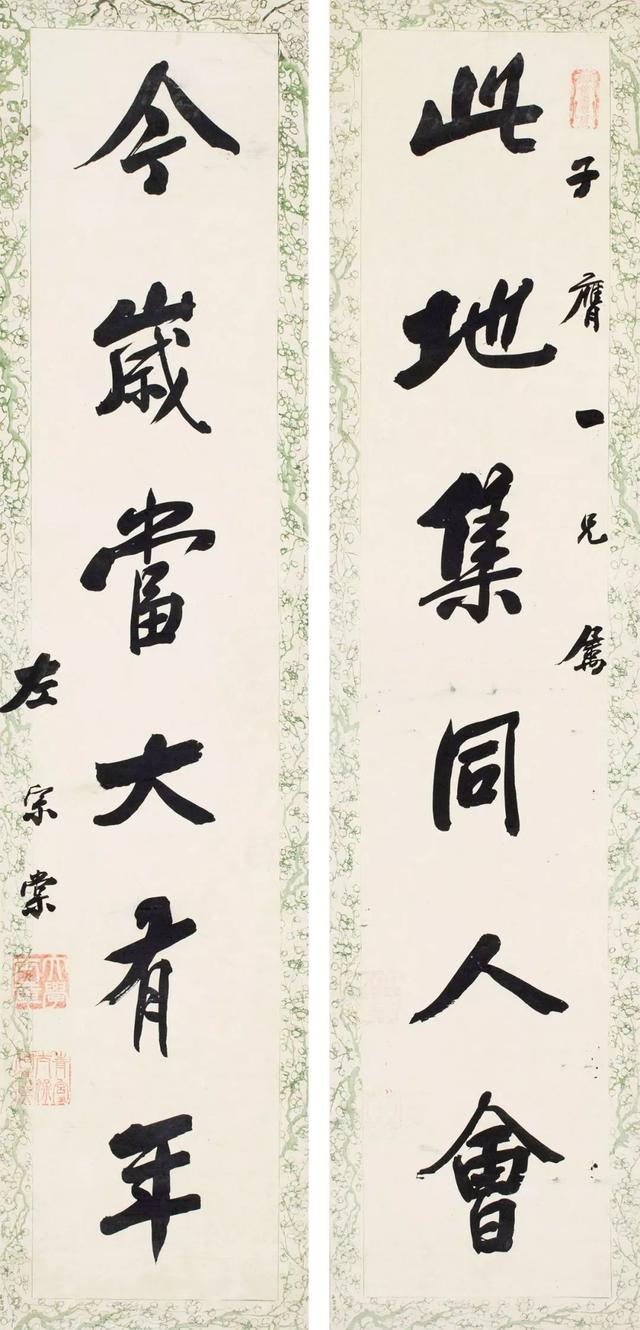 子膺一兄屬
此地集同人會
今歲當大有年
左宗棠
大學士章